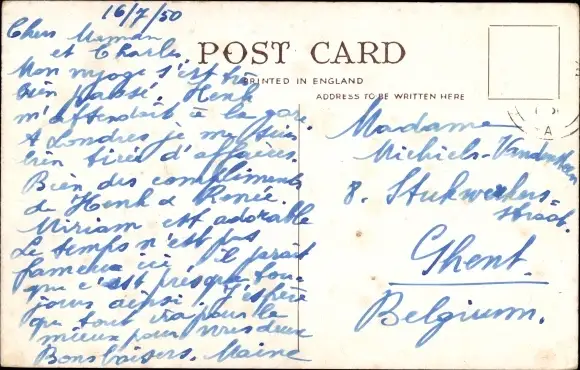 16/7/50
Chers Maman
et Charles,
Mon voyage s'est très
bien passé, Henk
m'attendait à la gare.
A Londres je me suis
bien tirée d'affaires.
Bien des compliments
de Henk & Renée.
Miriam est adorable
Le temps n'est pas
fameux ici, il parait
que c'est presque tou-
jours ainsi. J'espère
que tout ira pour le
mieux pour vous deux
Bons baisers. Maine
POST CARD
PRINTED IN ENGLAND
ADDRESS TO BE WRITTEN HERE
A
Madame
Michiels-
8. Stukwerkers=
straat.
Ghent.
Belgium.